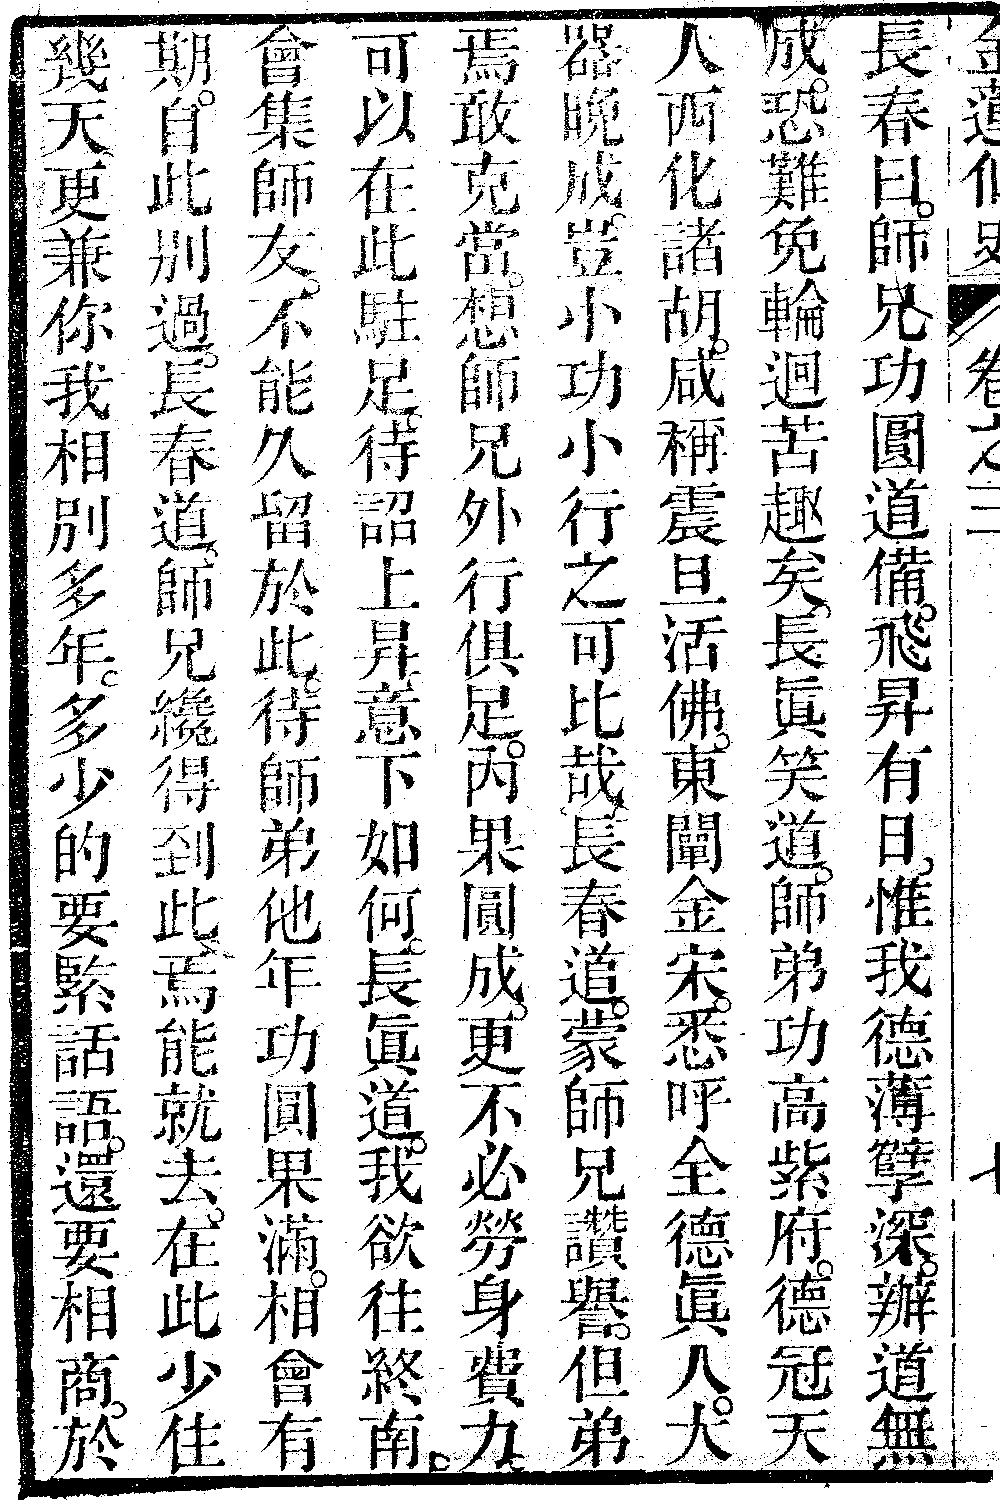 金蓮仙史 卷之三 七
長春曰。師兄功圓道備。飛昇有日。惟我德薄孽深。辦道無
成。恐難免輪迴苦趣矣。長眞笑道。師弟功高紫府。德冠天
人西化諸胡。咸稱震旦活佛。東闡金宋。悉呼全德眞人。大
器晚成。豈小功小行之可比哉。長春道。蒙師兄讚譽。但弟
焉敢克當。想師兄外行俱足。丙果圓成。更不必勞身費力。
可以在此駐足。待詔上昇。意下如何。長眞道。我欲往終南。
會集師友。不能久留於此。待師弟他年功圓果滿。相會有
期。自此別過。長春道。師兄纔得到此。焉能就去。在此少住
幾天。更兼你我相別多年。多少的要緊話語。還要相商。於